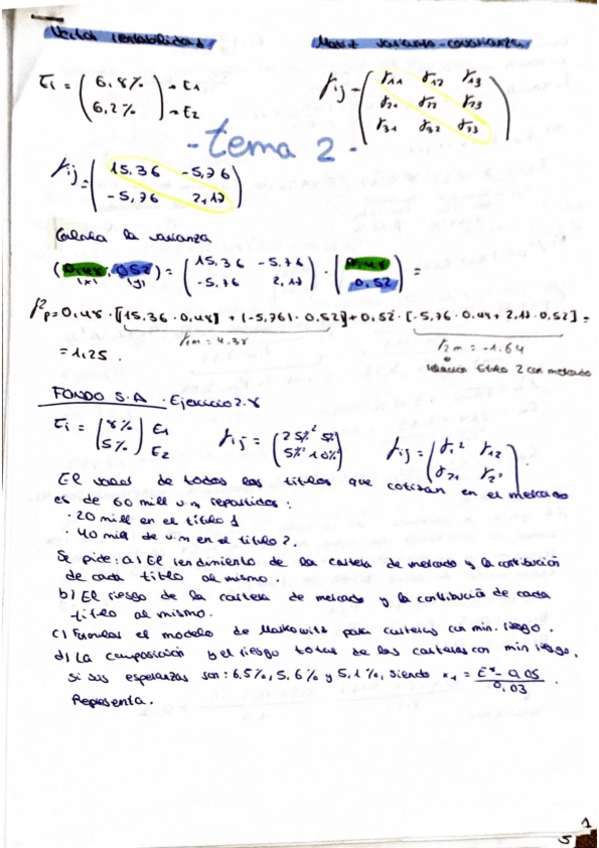 Vector rentabilidad
Matriz varianza-covarianza
Ei = (6,8% → E1
6,2% → E2)
γij = (γ11 γ12 γ13
γ21 γ22 γ23
γ31 γ32 γ33)
- tema 2 -
γij = (15,36 -5,76
-5,76 2,17)
Calcula la varianza
(0,48, 0,52) = (15,36 -5,76
-5,76 2,17) · (0,48
0,52) =
(x1) (y)
γ²p = 0,48 · [15,36 · 0,48] + (-5,76) · 0,52] + 0,52 · [-5,76 · 0,48 + 2,17 · 0,52] =
γ1m = 4,38
γ2m = -1,64
= 1,25.
título 2 con mercado
FONDO S.A. Ejercicio 2.8
Ei = (8% E1
5% E2)
γij = (25%² 5%²
5%² 10%²)
γij = (γ1² γ12
γ21 γ2²)
El valor de todos los títulos que cotizan en el mercado
es de 60 mill u.m repartidos:
· 20 mill en el título 1
· 40 mill de u.m en el título 2.
Se pide: a) El rendimiento de la cartera de mercado y la contribución
de cada título al mismo.
b) El riesgo de la cartera de mercado y la contribución de cada
título al mismo.
c) Formular el modelo de Markowitz para carteras con min. riesgo.
d) La composición y el riesgo total de las carteras con min riesgo,
si sus esperanzas son: 6,5%, 5,6% y 5,1%, siendo x1 = E* - 0,05
0,03
Representa.
1
5